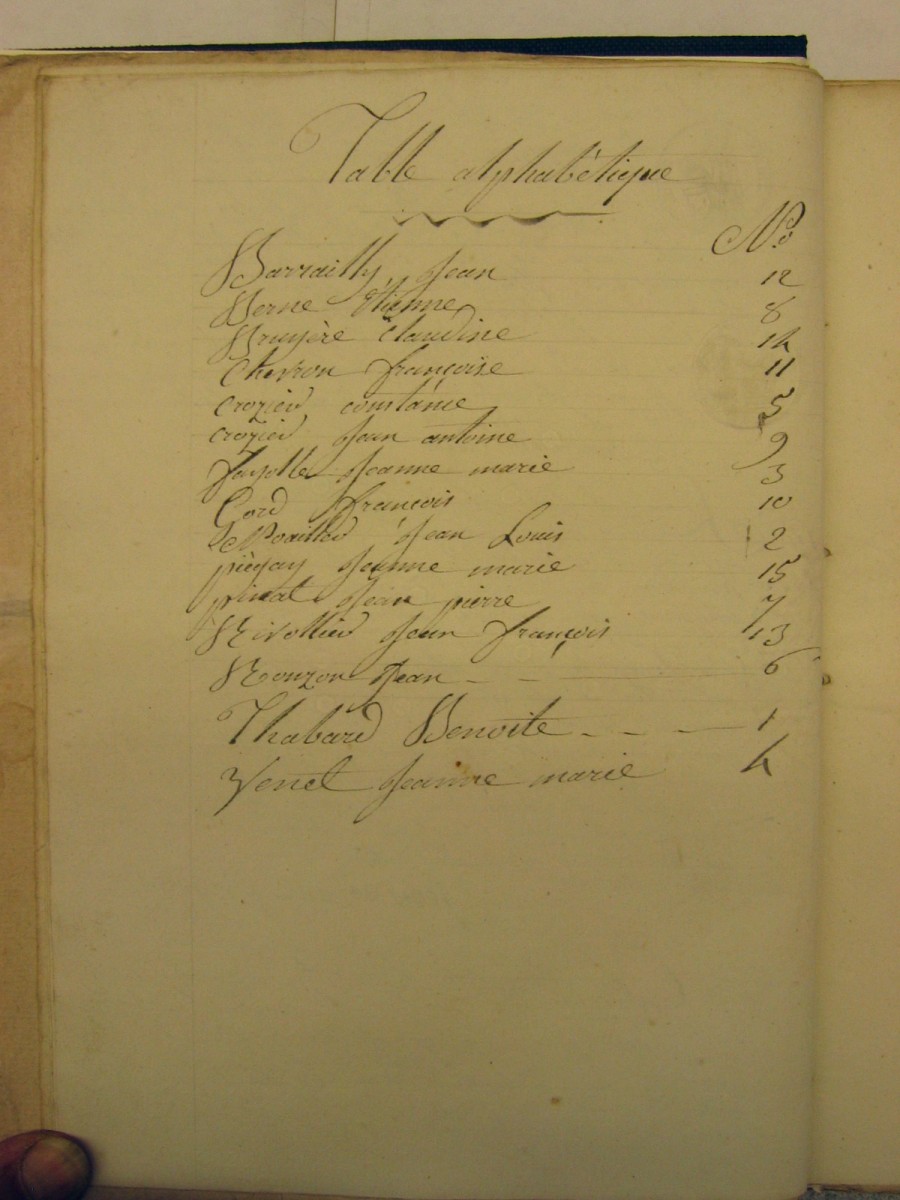 Table alphabétique
No.
Barrailly Jean 12
Berne Étienne 8
Bruyère Claudine 14
Chevron françoise 11
Crozier Constance 5
Crozier Jean antoine 9
fayolle Jeanne marie 3
Gord françois 10
Jean Louis 2
piégay Jeanne marie 15
pinat Jean pierre 7
Rivollier Jean françois 13
Rouzon Jean - - 6
Thabard Benoite - - - 1
Venet Jeanne marie 4